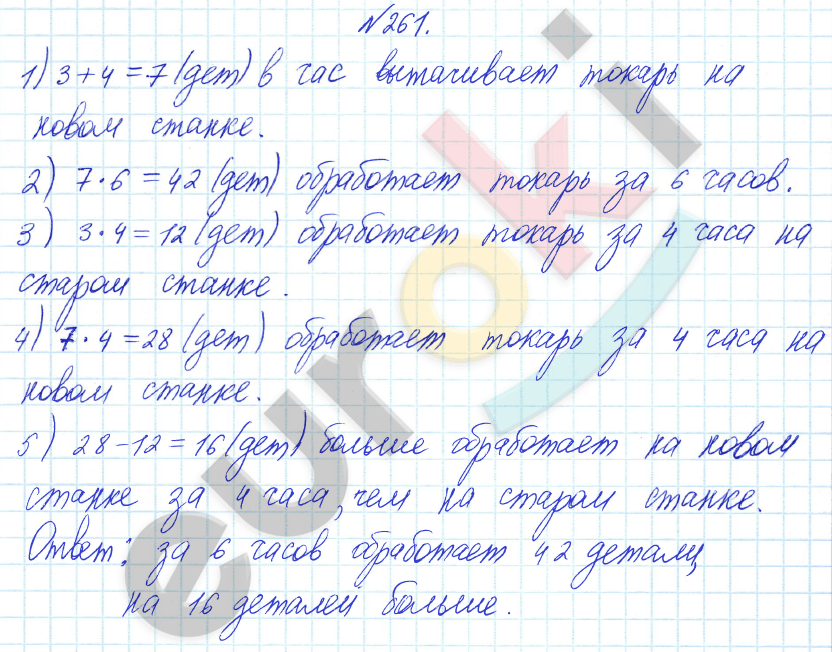 №261.
1) 3+4=7(дет) в час вытачивает токарь на
новом станке.
2) 7·6=42(дет) обработает токарь за 6 часов.
3) 3·4=12(дет) обработает токарь за 4 часа на
старом станке.
4) 7·4=28(дет) обработает токарь за 4 часа на
новом станке.
5) 28-12=16(дет) больше обработает на новом
станке за 4 часа, чем на старом станке.
Ответ: за 6 часов обработает 42 детали,
на 16 деталей больше.
euroki